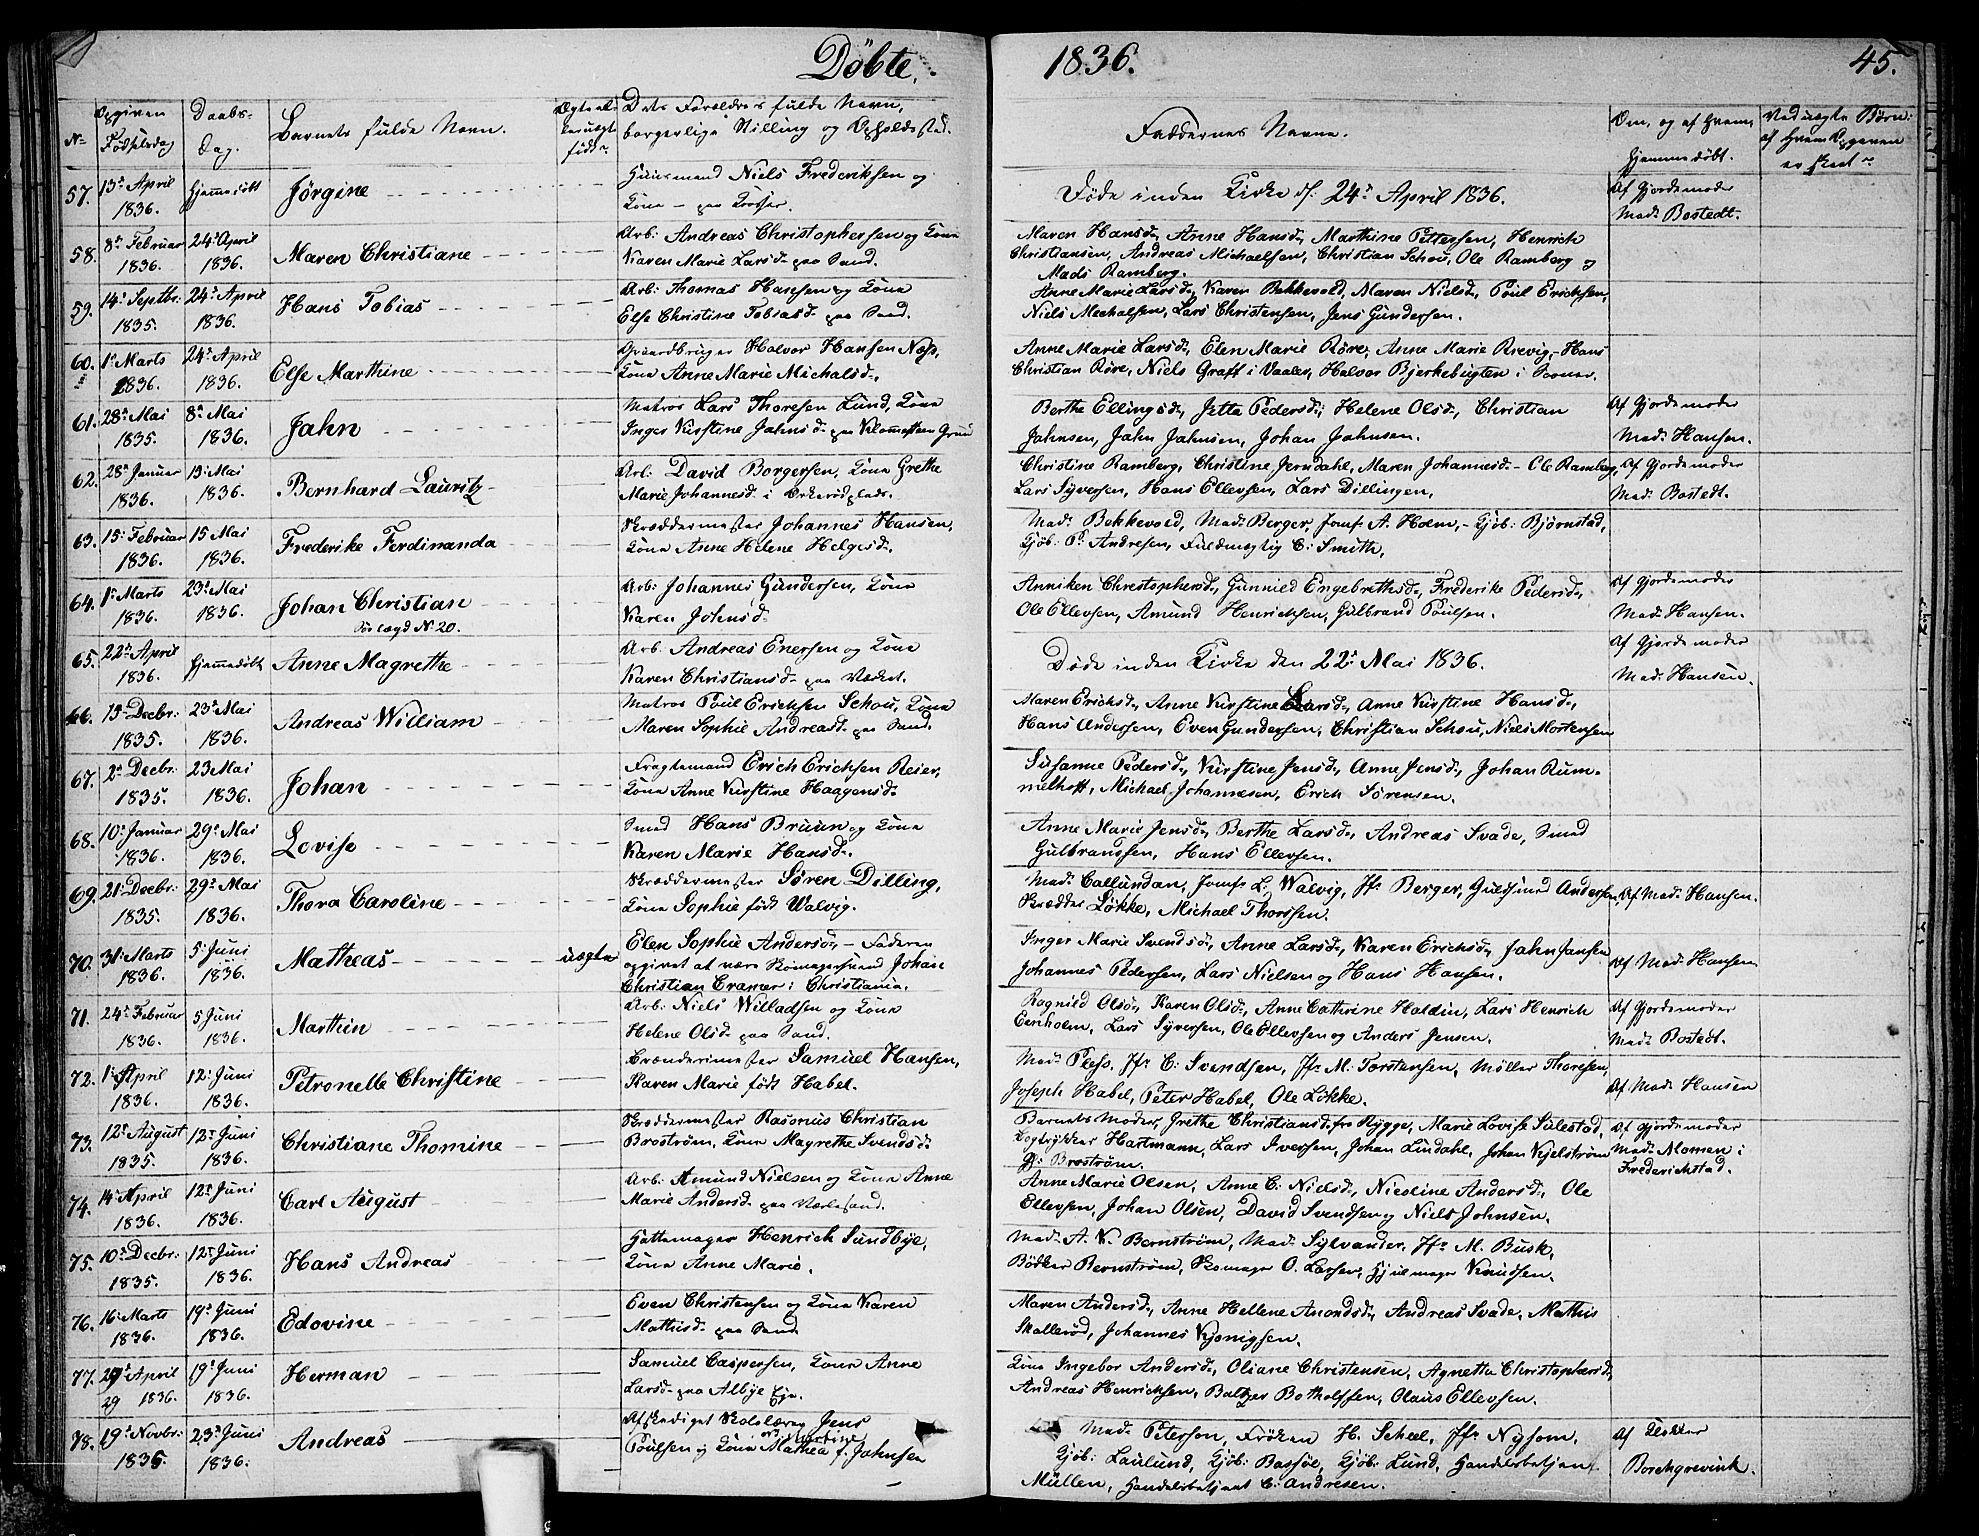 Døbte, 1836. 45.
No Opgiven Fødselsdag Daabs-Dag. Barnets fulde Navn. Dets Forældres fulde Navn, borgerlige Stilling og Opholdssted. Faddernes Navne. Om, og af hvem, hjemmedøbt. Ved uægte Børn: af hvem Opgaven er skeet
57. 13de April hjemmedøbt Jørgine Huusmand Niels Frederiksen og Døde inden Kirke d. 24de April 1836. Af Gjordemoder
1836. Kone Mad: Bostedt.
58. 8de Februar 24de April Maren Christiane Arb: Andreas Christophersen og Kone Maren Hansd., Anne Hansd., Marthine Pettersen, Henrich
1836. 1836. Karen Marie Larsd. paa Sand. Christiansen, Andreas Michaelsen, Christian Schou, Ole Ramberg og
Mads Ramberg.
59. 14de Septbr: 24de April Hans Tobias Arb: Thomas Hansen og Kone Anne Marie Larsd., Karen Bekkevold, Maren Nielsd., Poul Ericksen,
1835. 1836. Else Christine Tobiasd. paa Sand. Niels Mechalsen, Lars Christensen, Jens Gundersen.
60. 1de Marts 24de April Else Marthine Gaardbruger Halvor Hansen Næs, Anne Marie Larsd., Elen Marie Røre, Anne Marie Brevig, Hans
1836. 1836. Kone Anne Marie Michalsd. Christian Røre, Niels Graff i Vaaler, Halvor Bjerkebugten i Soner.
61. 28de Mai 8de Mai Jahn Matros Lars Thoresen Lund, Kone Berthe Ellingsd., Jetta Pedersd., Helene Olsd., Christian Af Gjordemoder
1835. 1836. Inger Kirstine Jahnsd. paa Klommesten Grund Jahnsen, Jahn Jahnsen, Johan Jahnsen. Mad: Hansen.
62. 28de Januar 15 Mai Bernhard Lauritz Arb: David Borgersen, Kone Grethe Christine Ramberg, Christine Jerndahl, Maren Johannesd. - Ole Ramberg, Af Gjordemoder
1836. 1836. Marie Johannesd. i Lars Syversen, Hans Ellevsen, Lars Dillingen, Mad: Bostedt.
63. 15de Februar 15 Mai Frederike Ferdinanda Skræddermester Johannes Hansen, Mad: Bekkevold, Mad: Berger, Jomf: A. Holm, - Gjøb: Bjørnstad,
1836. 1836. Kone Anne Helene Helgesd. Gjøb: P. Andresen, Fuldmægtig C: Smith,
64. 1de Marts 23de Mai Johan Christian Arb: Johannes Gundersen, Kone Anniken Chrestophersd., Gunnild Engebrethsd., Frederike Pedersd., Af Gjordemoder
1836. 1836. Forlægd No 20. Karen Johnsd. Ole Ellevsen, Amund Henricksen, Gulbrand Poulsen. Mad: Hansen.
65. 22de April hjemmedøbt Anne Magrethe Arb. Andreas Enersen og Kone Døde inden Kirke den 22de Mai 1836. Af Gjordemoder
1836. Karen Christiansd. paa Værket. Mad: Hansen.
66. 15de Decbr: 23de Mai Andreas William Matros Poul Ericksen Schou, Kone Maren Ericksd., Anne Kirstine Larsd., Anne Kirstine Hansd.,
1835. 1836. Maren Sophie Andreasd. paa Sand. Hans Andersen, Even Gundersen, Christian Schou, Niels Mortensen
67. 2de Decbr: 23 Mai Johan Fragtemand Erich Ericksen Reier, Susanne Pedersd., Kirstine Jensd., Anne Jensd., Johan Rum-
1835. 1836. Kone Anne Kirstine Haagensd. melhoff, Michael Johannesen, Erich Sørensen.
68. 10de Januar 29de Mai Lovise Smed Hans Bruun og Kone Anne Marie Jensd., Berthe Larsd., Andreas Svade, Smed
1836. 1836. Karen Marie Hansd. Gulbranssen, Hans Ellevsen.
69. 21de Decbr: 29de Mai Thora Caroline Skræddermester Søren Dilling, Mad: Callundan, Jomf: L. Walvig, Jfr Berger, Guldsmed Andersen, Af Mad: Hansen.
1835. 1836. Kone Sophie født Walvig. Skrædder Løkke, Michael Thorssen.
70. 31de Marts 5de Juni Matheas uægte Elen Sophie Andersd., - Faderen Inger Marie Svendsd., Anne Larsd., Karen Ericksd., Jahn Jansen Af Mad: Hansen
1836. 1836. opgivet at være Skomagersvend Johan Johannes Pedersen, Lars Nielsen og Hans Hansen.
Christian Cramer i Christiania.
71. 24de Februar 5 Juni Marthin Arb: Niels Willadsen og Kone Ragnild Olsd., Karen Olsd., Anne Cathrine Haldin, Lars Henrich Af Gjordemoder
1836. 1836. Helene Olsd. paa Sand. Eenholm, Lars Syversen, Ole Ellevsen og Anders Jensen. Mad: Bostedt.
72. 1de April 12de Juni Petronelle Christine Brænderimester Samuel Hansen, Mad: Pless, Jfr C. Svendsen, Jfr M. Torstensen, Møller Thoresen, Af Mad: Hansen
1836. 1836. Karen Marie født Habel. Joseph Habel, Peter Habel, Ole Løkke.
73. 12de August 12de Juni Christiane Thomine Skræddermester Rasmus Christian Barnets Moder, Grethe Christiansd. fra Rygge, Marie Lovise Sulestad, Af Gjordemoder
1835. 1836. Broström, Kone Magrethe Svendsd. Bogtrykker Hartmann, Lars Iversen, Johan Lindahl, Johan Kjelström Mad: Momen i
Broström. Frederichstad.
74. 14de April 12de Juni Carl August Arb. Amund Nielsen og Kone Anne Anne Marie Olsen, Anne C: Nielsd., Nicoline Andersd., Ole
1836. 1836. Marie Andersd. paa Værlesand. Ellevsen, Johan Olsen, David Svendsen og Niels Johnsen.
75. 10de Decbr: 12de Juni Hans Andreas Hattemager Henrich Sundbye, Mad: A. K. Bernström, Mad: Sylvander, Jfr M. Busk,
1835. 1836. Kone Anne Marie. Bødker Bernström, Skomager O. Larsen, Hjulmager Knudsen.
76. 16de Marts 19de Juni Edovine Even Christensen og Kone Karen Maren Andersd., Anne Hellene Amondsd., Andreas Svade, Mathis
1836. 1836. Mathisd. paa Sand Skallerød, Johannes Kjonigsen.
77. 29de April 19de Juni Herman Samuel Caspersen, Kone Anne Kone Ingebor Andersd., Oliane Christensen, Agnetta Christophersd.,
29 1836. 1836. Larsd. paa Albye Eje. Andreas Henricksen, Baltzer Botholfsen, Olaus Ellevsen.
78. 19de Novbr: 23de Juni Andreas Afskediget Skolelærer Jens Mad: Peterson, Frøken H. Scheel, Jfr Nysom, Af Klokker
1835. 1836. Poulsen og Kone Mathea f. Jahnsen Gjøb: Laulund, Gjøb: Bassøe, Gjøb: Lund, Handelsbetjent Borchgrevink.
Müllen, Handelsbetjent C. Andresen.